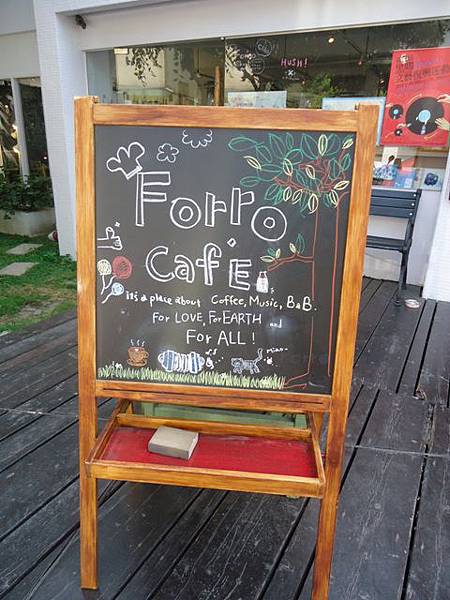 HUSH!
Forro
Cafe'
it's a place about Coffee, Music, B&B.
For LOVE, For EARTH and
For ALL!
miao~